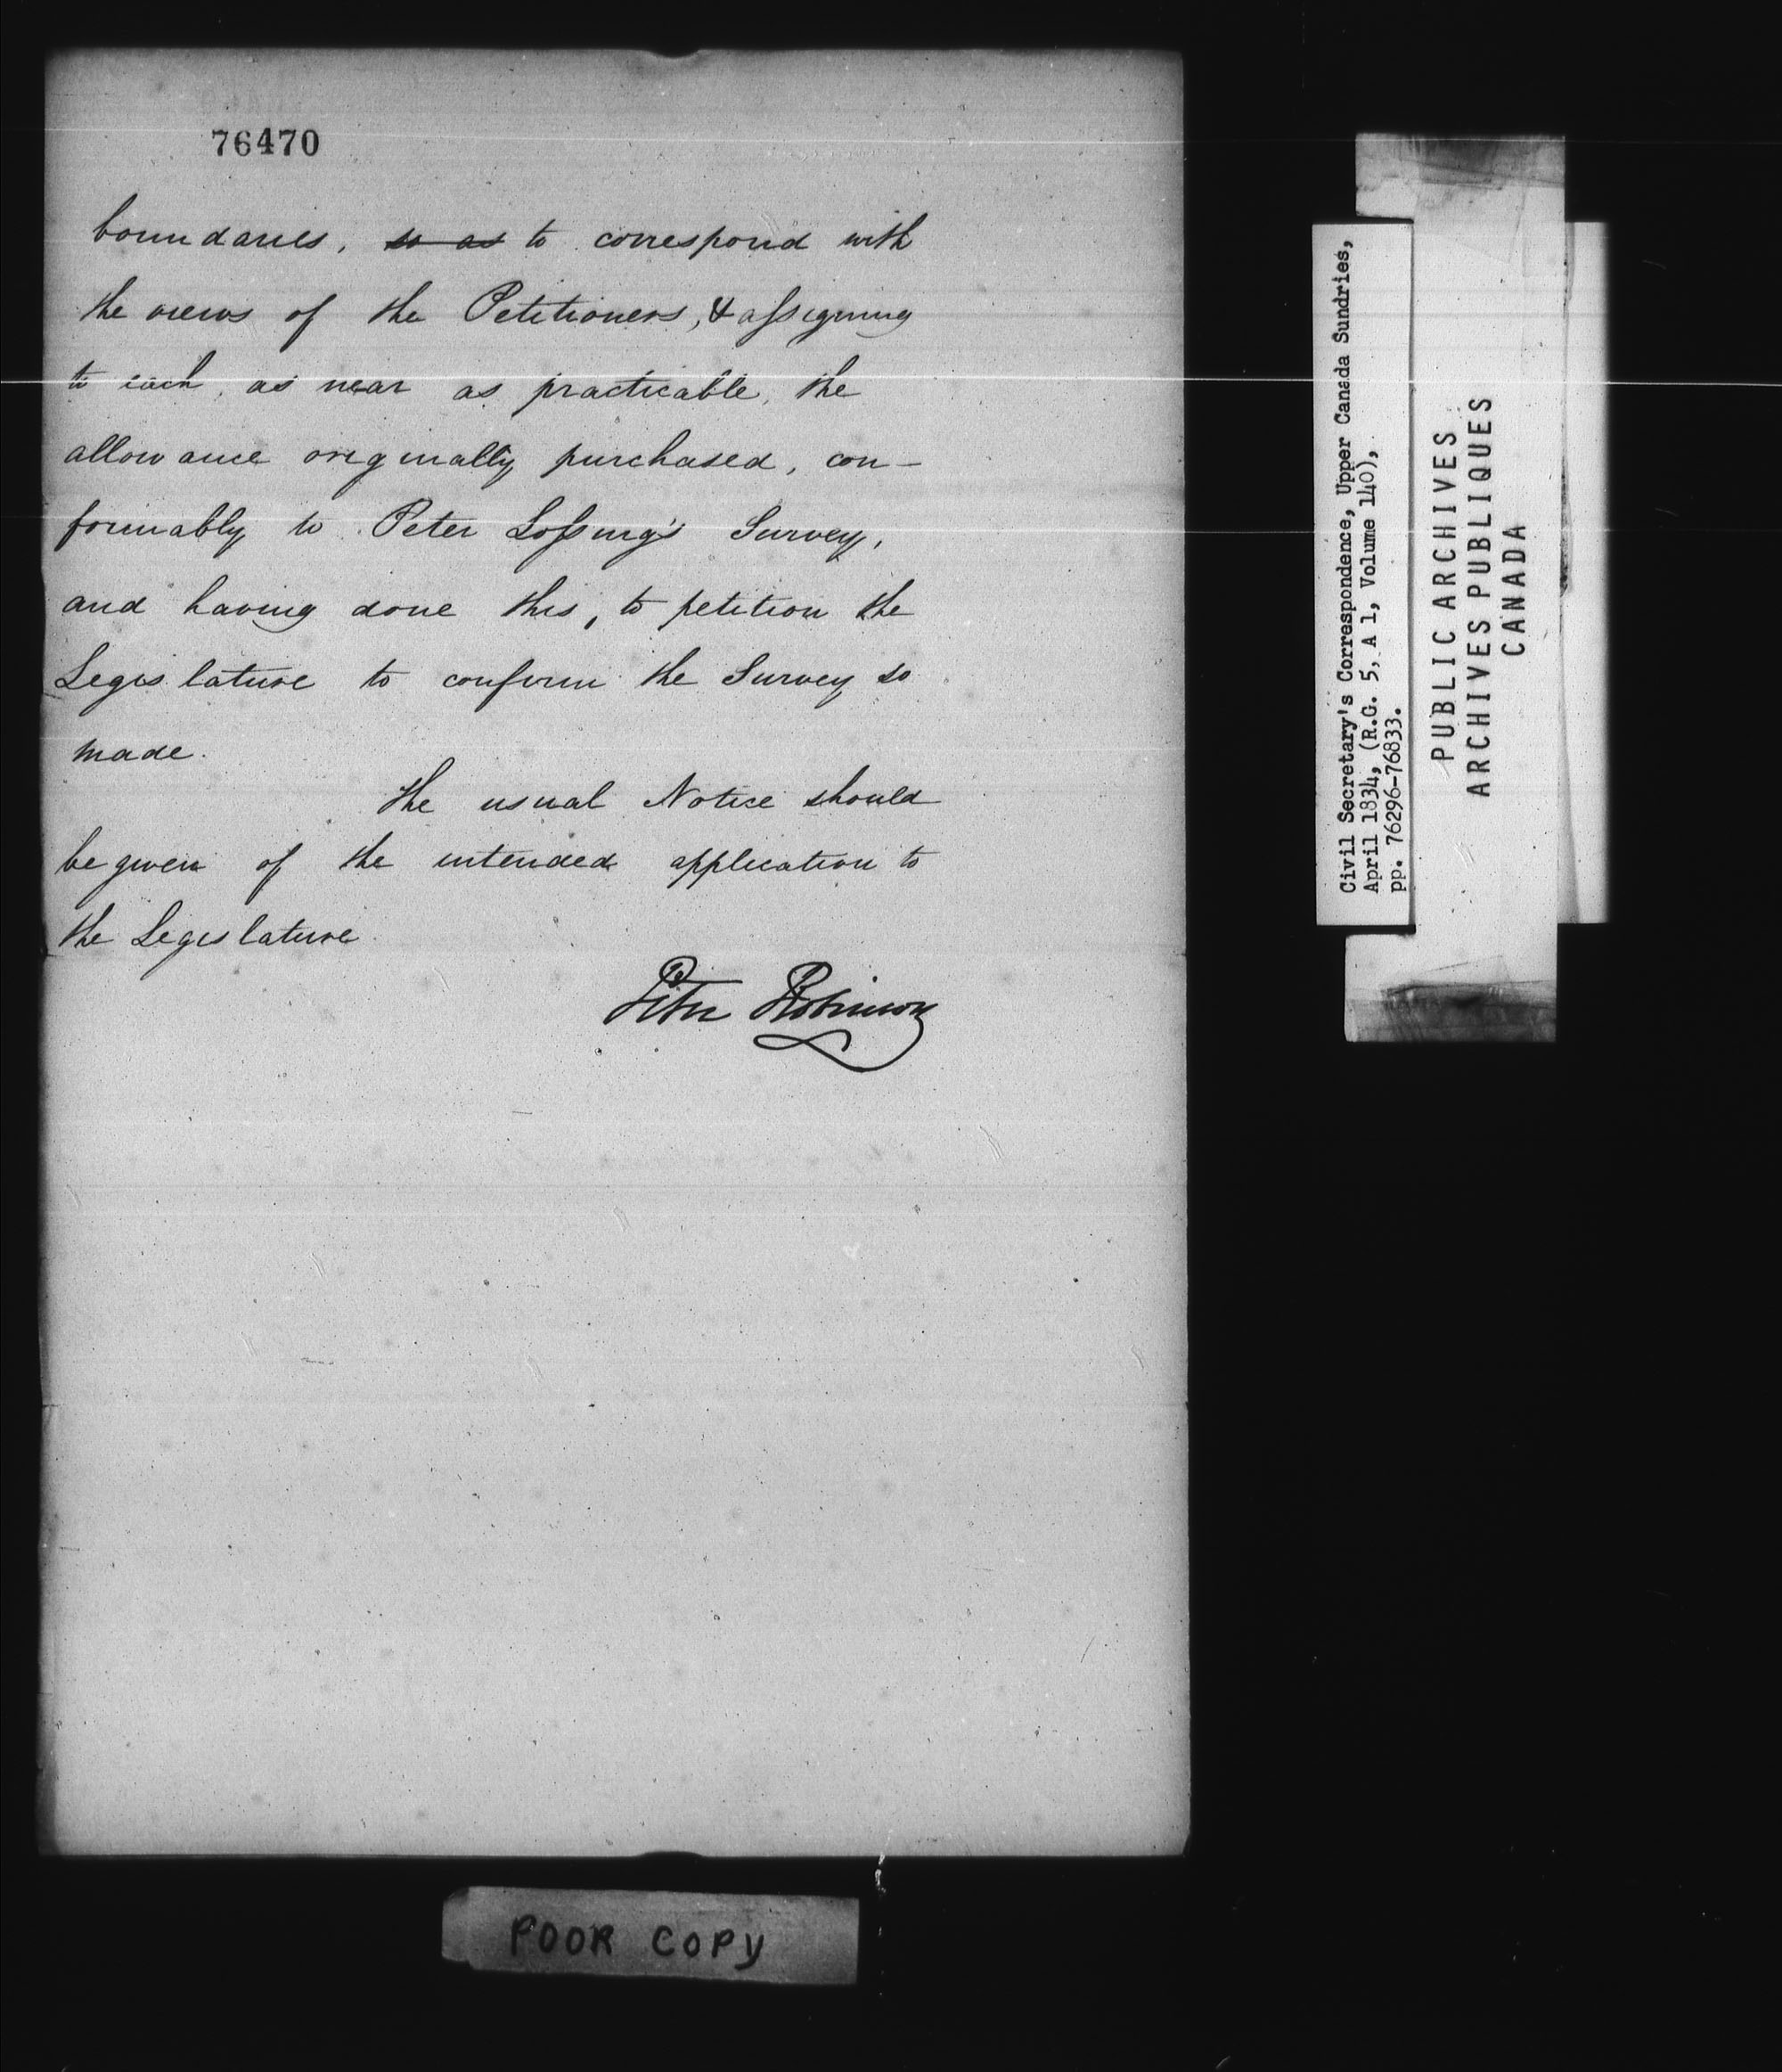 76470
boundaries, so as to correspond with
the views of the Petitioners, & assigning
to each, as near as practicable, the
allowance originally purchased, con-
formably to Peter Lossing's Survey,
and having done this, to petition the
Legislature to confirm the Survey so
made.
The usual Notice should
be given of the intended application to
the Legislature
Peter Robinson
POOR COPY
Civil Secretary's Correspondence, Upper Canada Sundries,
April 1834, (R.G. 5, A 1, Volume 140),
pp. 76296-76833.
PUBLIC ARCHIVES
ARCHIVES PUBLIQUES
CANADA